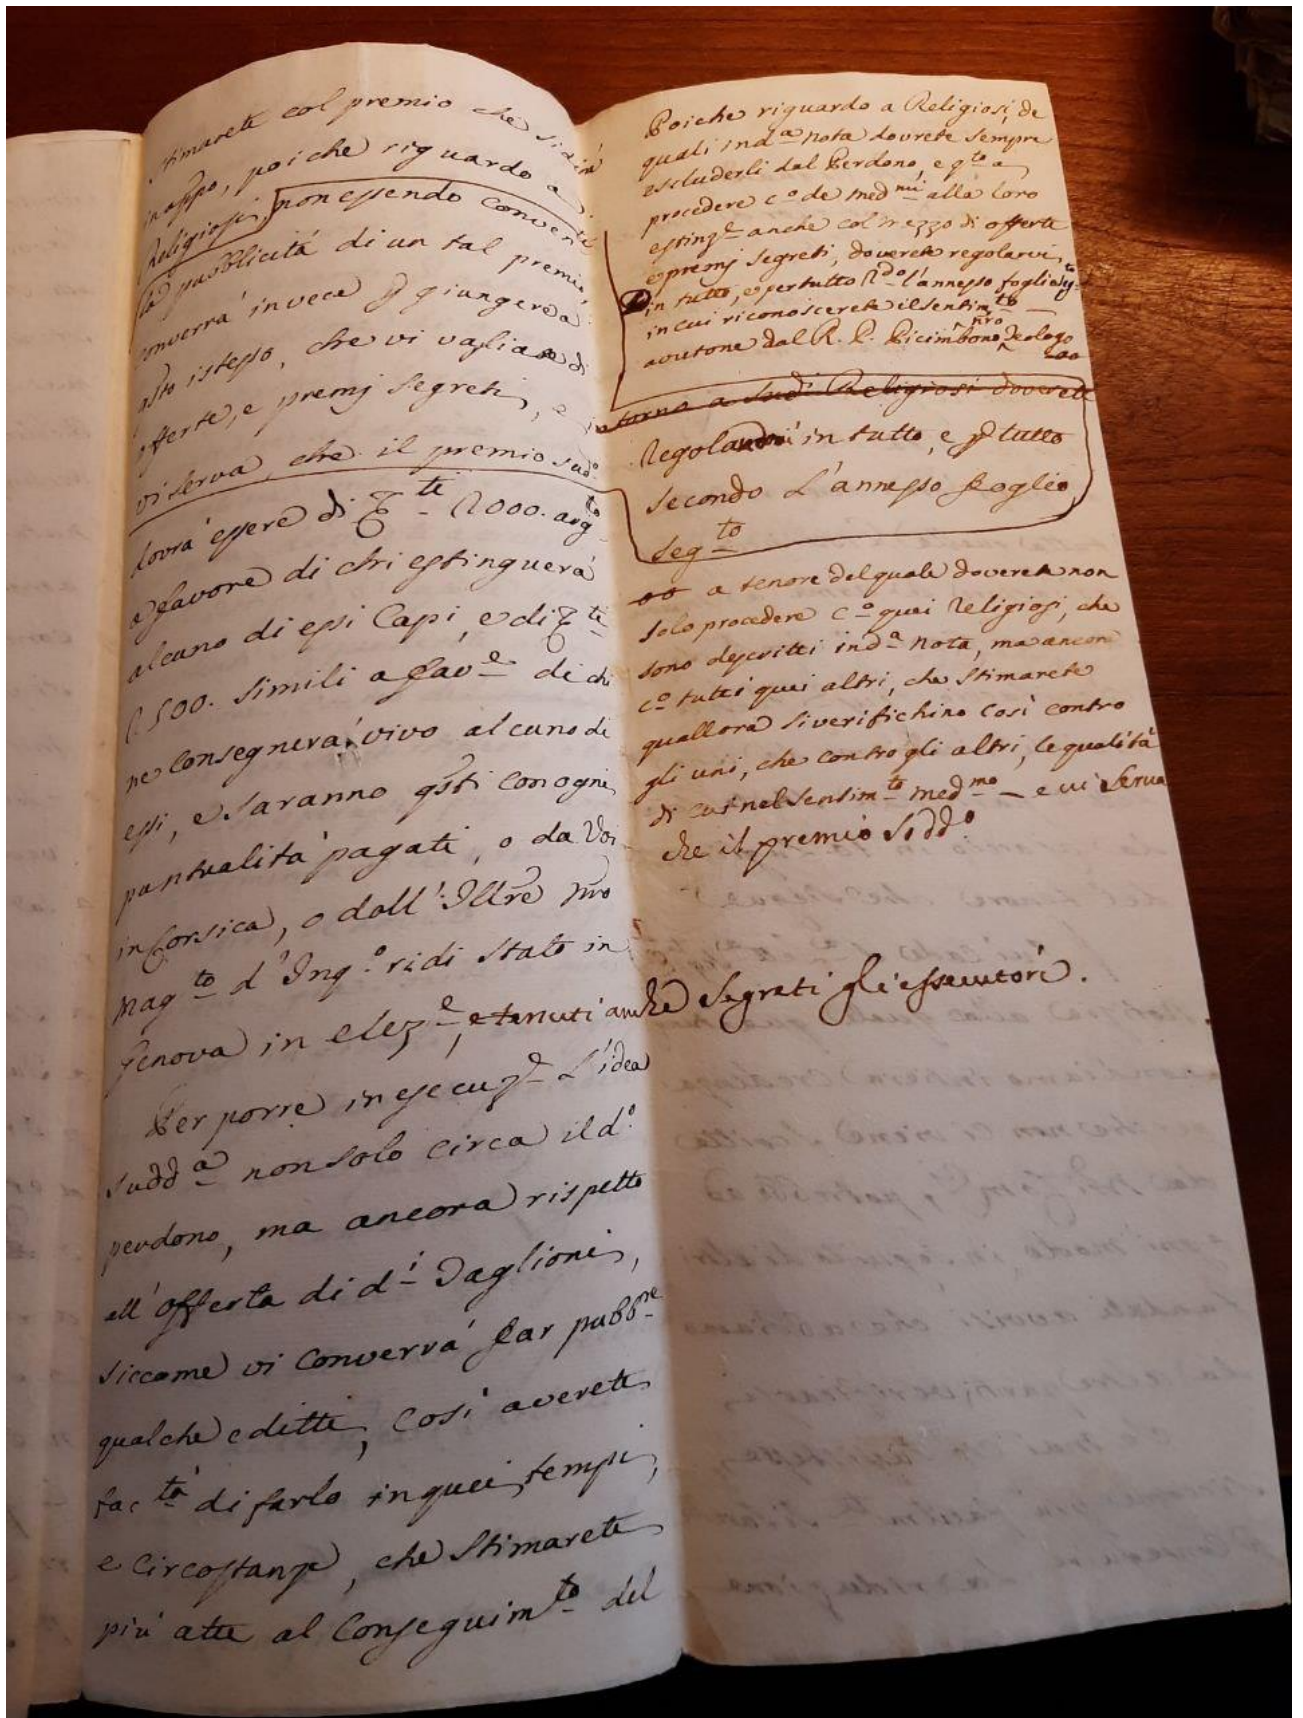 stimarete col premio che si dirà
in app.o, poiche riguardo a
Religiosi, non essendo conven.te
la pubblicità di un tal premio,
converrà invece p giungere a
istesso, che vi vagliate di
offerte, e premij segreti, e
vi serva, che il premio sud.o
dovrà essere di 2000. arg.to
a favore di chi estinguerà
alcuno di essi Capi, e di
1500. simili a fav.e di chi
ne consegnerà vivo alcuno di
essi, e saranno qsti con ogni
puntualità pagati, o da Voi
in Corsica, o dall'Illre nro
Mag.to d'Inq.ri di Stato in
Genova in elez.e, e tenuti anche segreti gli essecutori.
Per porre in esecuz.e L'idea
sudd.a non solo circa il d.o
perdono, ma ancora rispetto
all'offerta di d.i Taglioni,
siccome vi converrà far pubb.re
qualche editti, così averete
fac.tà di farlo in quei tempi,
e circostanze, che stimarete
più atte al Conseguim.to del
Poiche riguardo a Religiosi, de
quali in d.a nota dovrete sempre
escluderli dal Perdono, e q.to a
procedere c.o de med.mi alla loro
estinz.e anche col mezzo di offerte
e premij segreti, doverete regolarvi
in tutto, e per tutto l'annesso foglio
in cui riconoscerete il sentim.to
avutone dal R. P. Picimbono nro Teologo
intorno a sud.i Religiosi doverete
Regolarvi in tutto, e p tutto
secondo L'annesso foglio
seg.to
a tenore del quale doverete non
solo procedere c.o quei Religiosi, che
sono descritti in d.a nota, ma ancora
c.o tutti quei altri, che stimarete
quallora si verifichino così contro
gli uni, che contro gli altri, le qualità
di cui nel sentim.to med.mo e vi serva
che il premio sodd.o